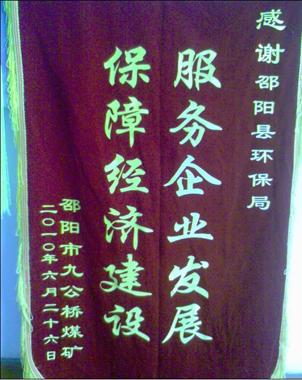 感谢邵阳县环保局
服务企业发展
保障经济建设
邵阳市九公桥煤矿
二〇一〇年六月二十六日